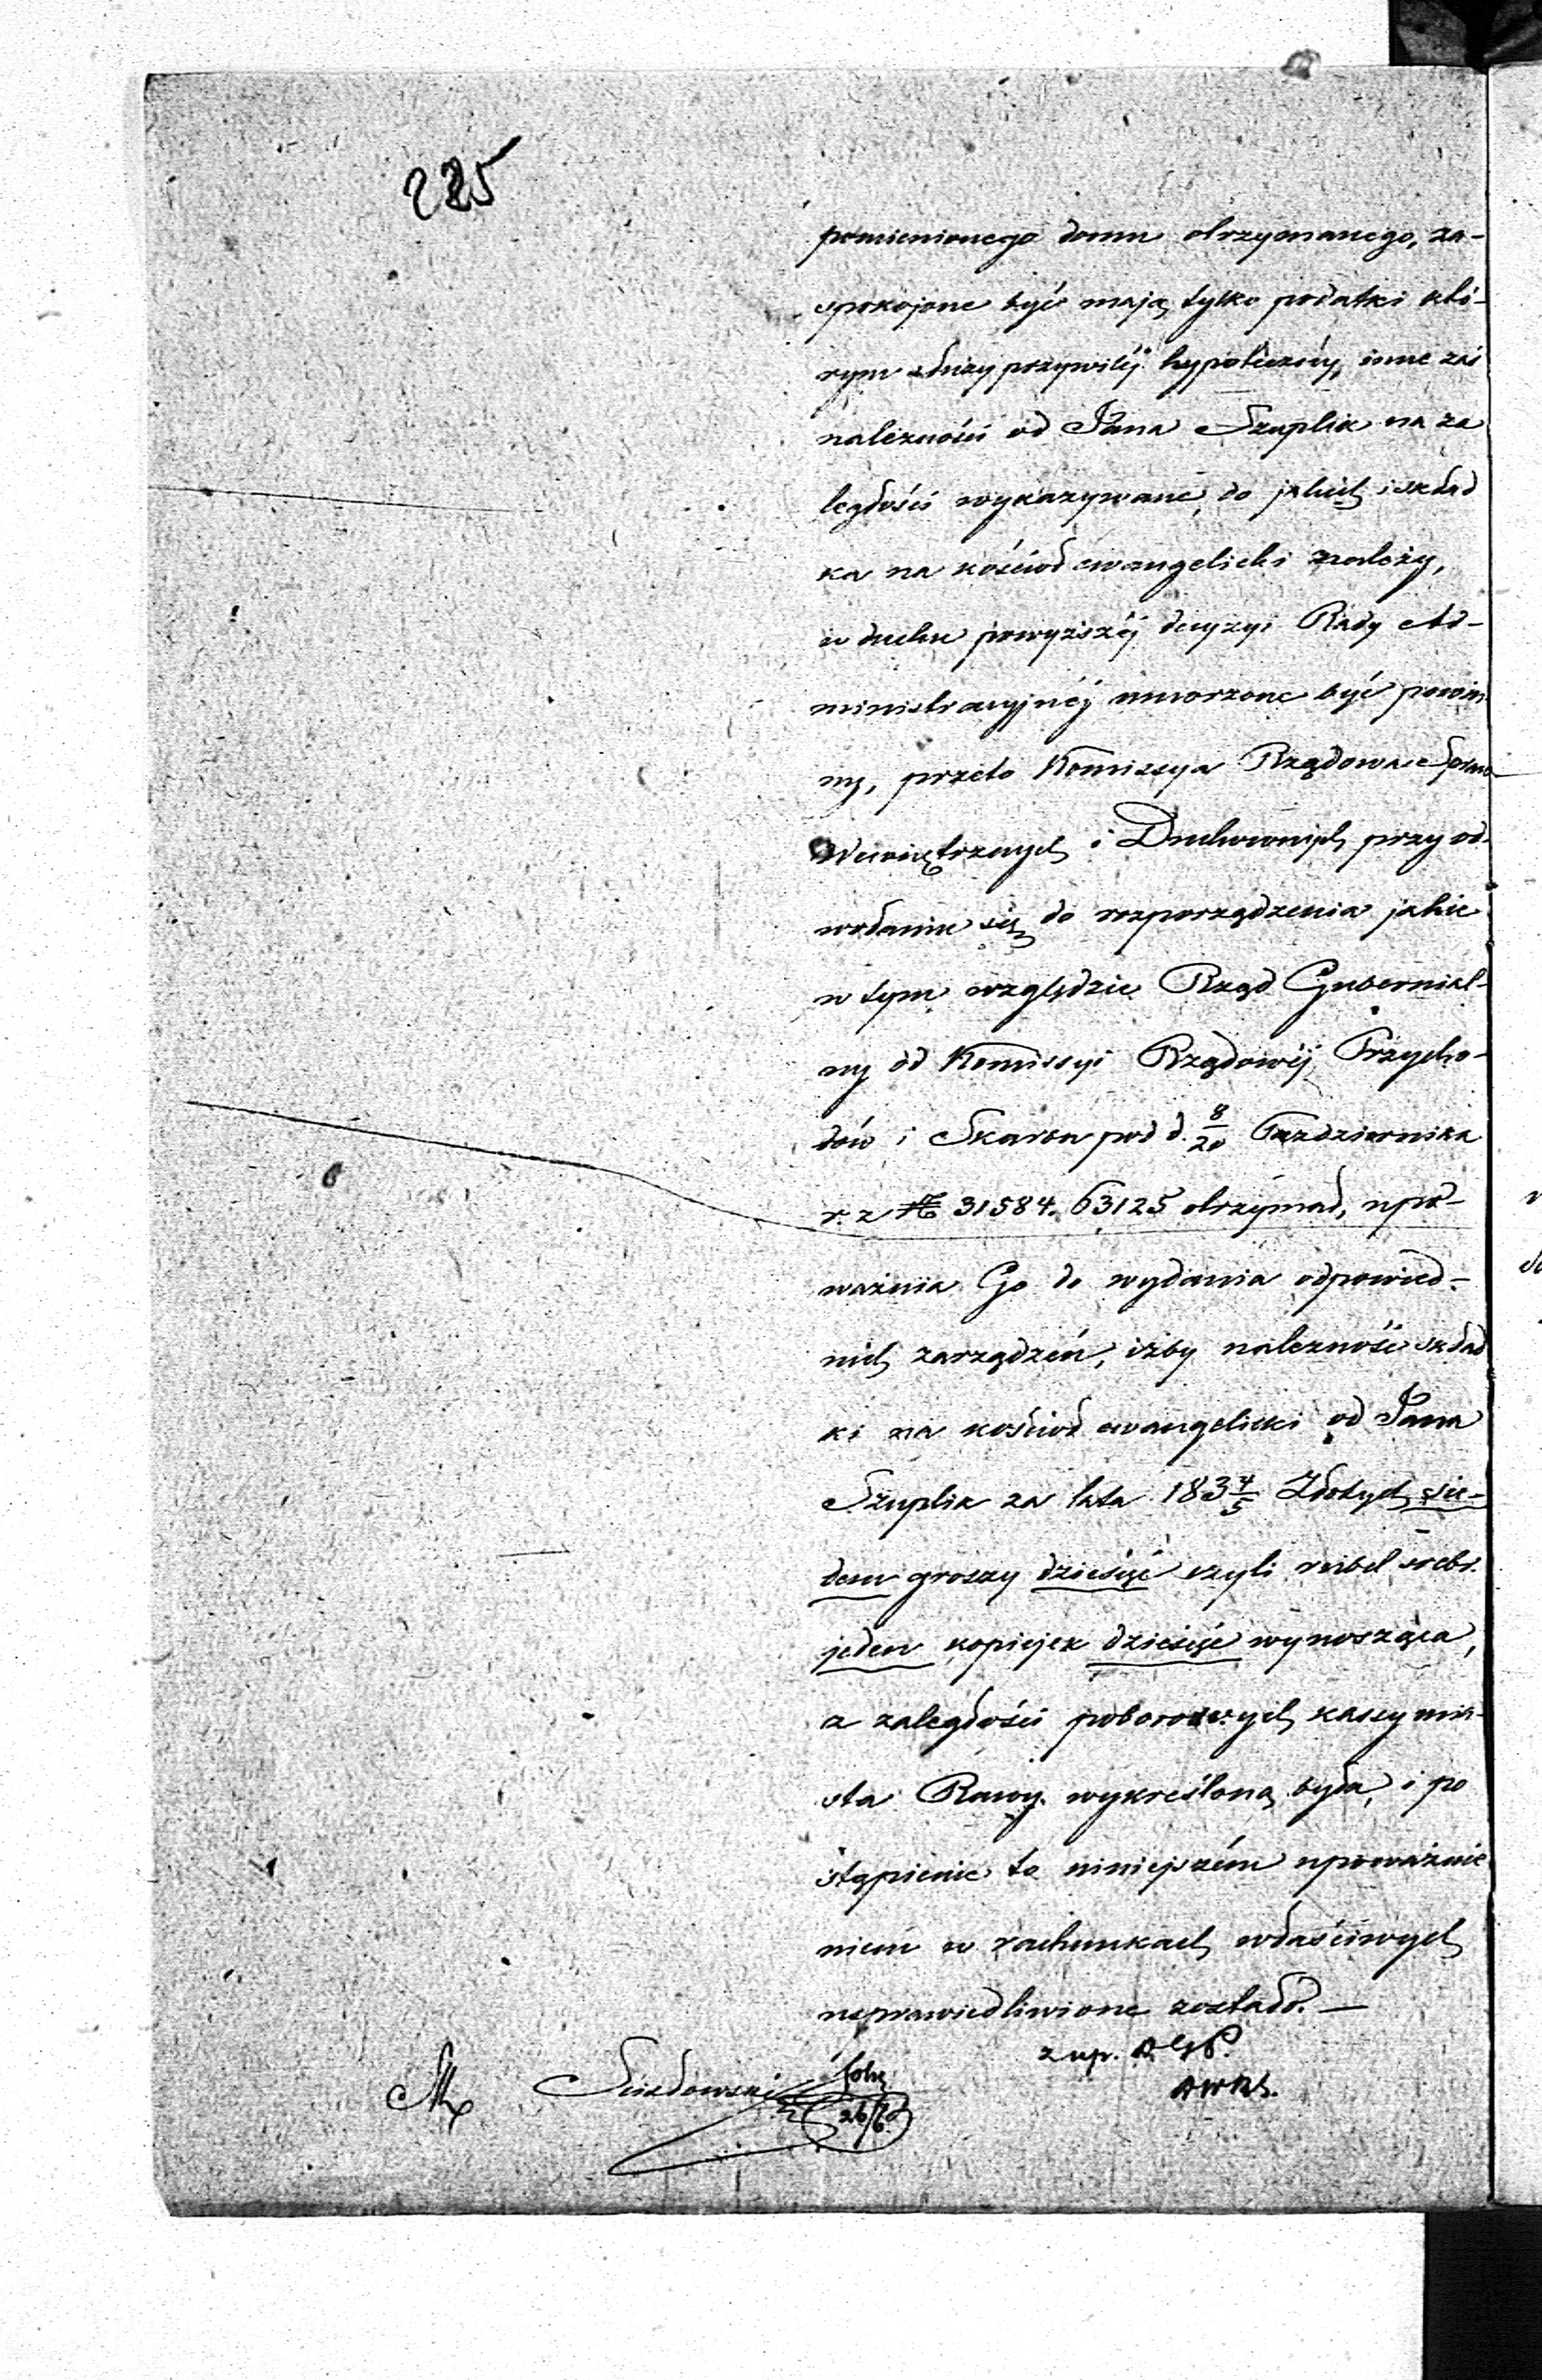 225
pomienionego domu otrzymanego, za-
spokojone być mają tylko podatki któ-
rym służy przywiléj hypoteczny, inne zaś
należności od Jana Szuplik na za
ległości wykazywane, do jakich i skład
ka na kościoł ewangelicki należy,
w duchu powyższéj decyzyi Rady Ad-
ministracyjnéj umorzone być powin-
ny, przeto Komissya Rządowa Spraw
Wewnętrznych i Duchownych przy od-
wołaniu się do rozporządzenia jakie
w tym względzie Rząd Gubernial-
ny od Komissyi Rządowéj Przycho-
dów i Skarbu pod d. 8/20 Października
r. z № 31584. 63125 otrzymał, upo-
ważnia Go do wydania odpowied-
nich zarządzeń, iżby należność skład
ki na kościoł ewangelicki od Jana
Szuplik za lata 183 4/5 Złotych sie-
dem groszy dziesięć czyli rubel srebr.
jeden kopiejek dziesięć wynosząca,
z zaległości poborowych kassy mia-
sta Rawy wykreśloną była, i po
stąpienie to niniejszém upoważnie
niem w rachunkach właściwych
usprawiedliwione zostało. —
26/6